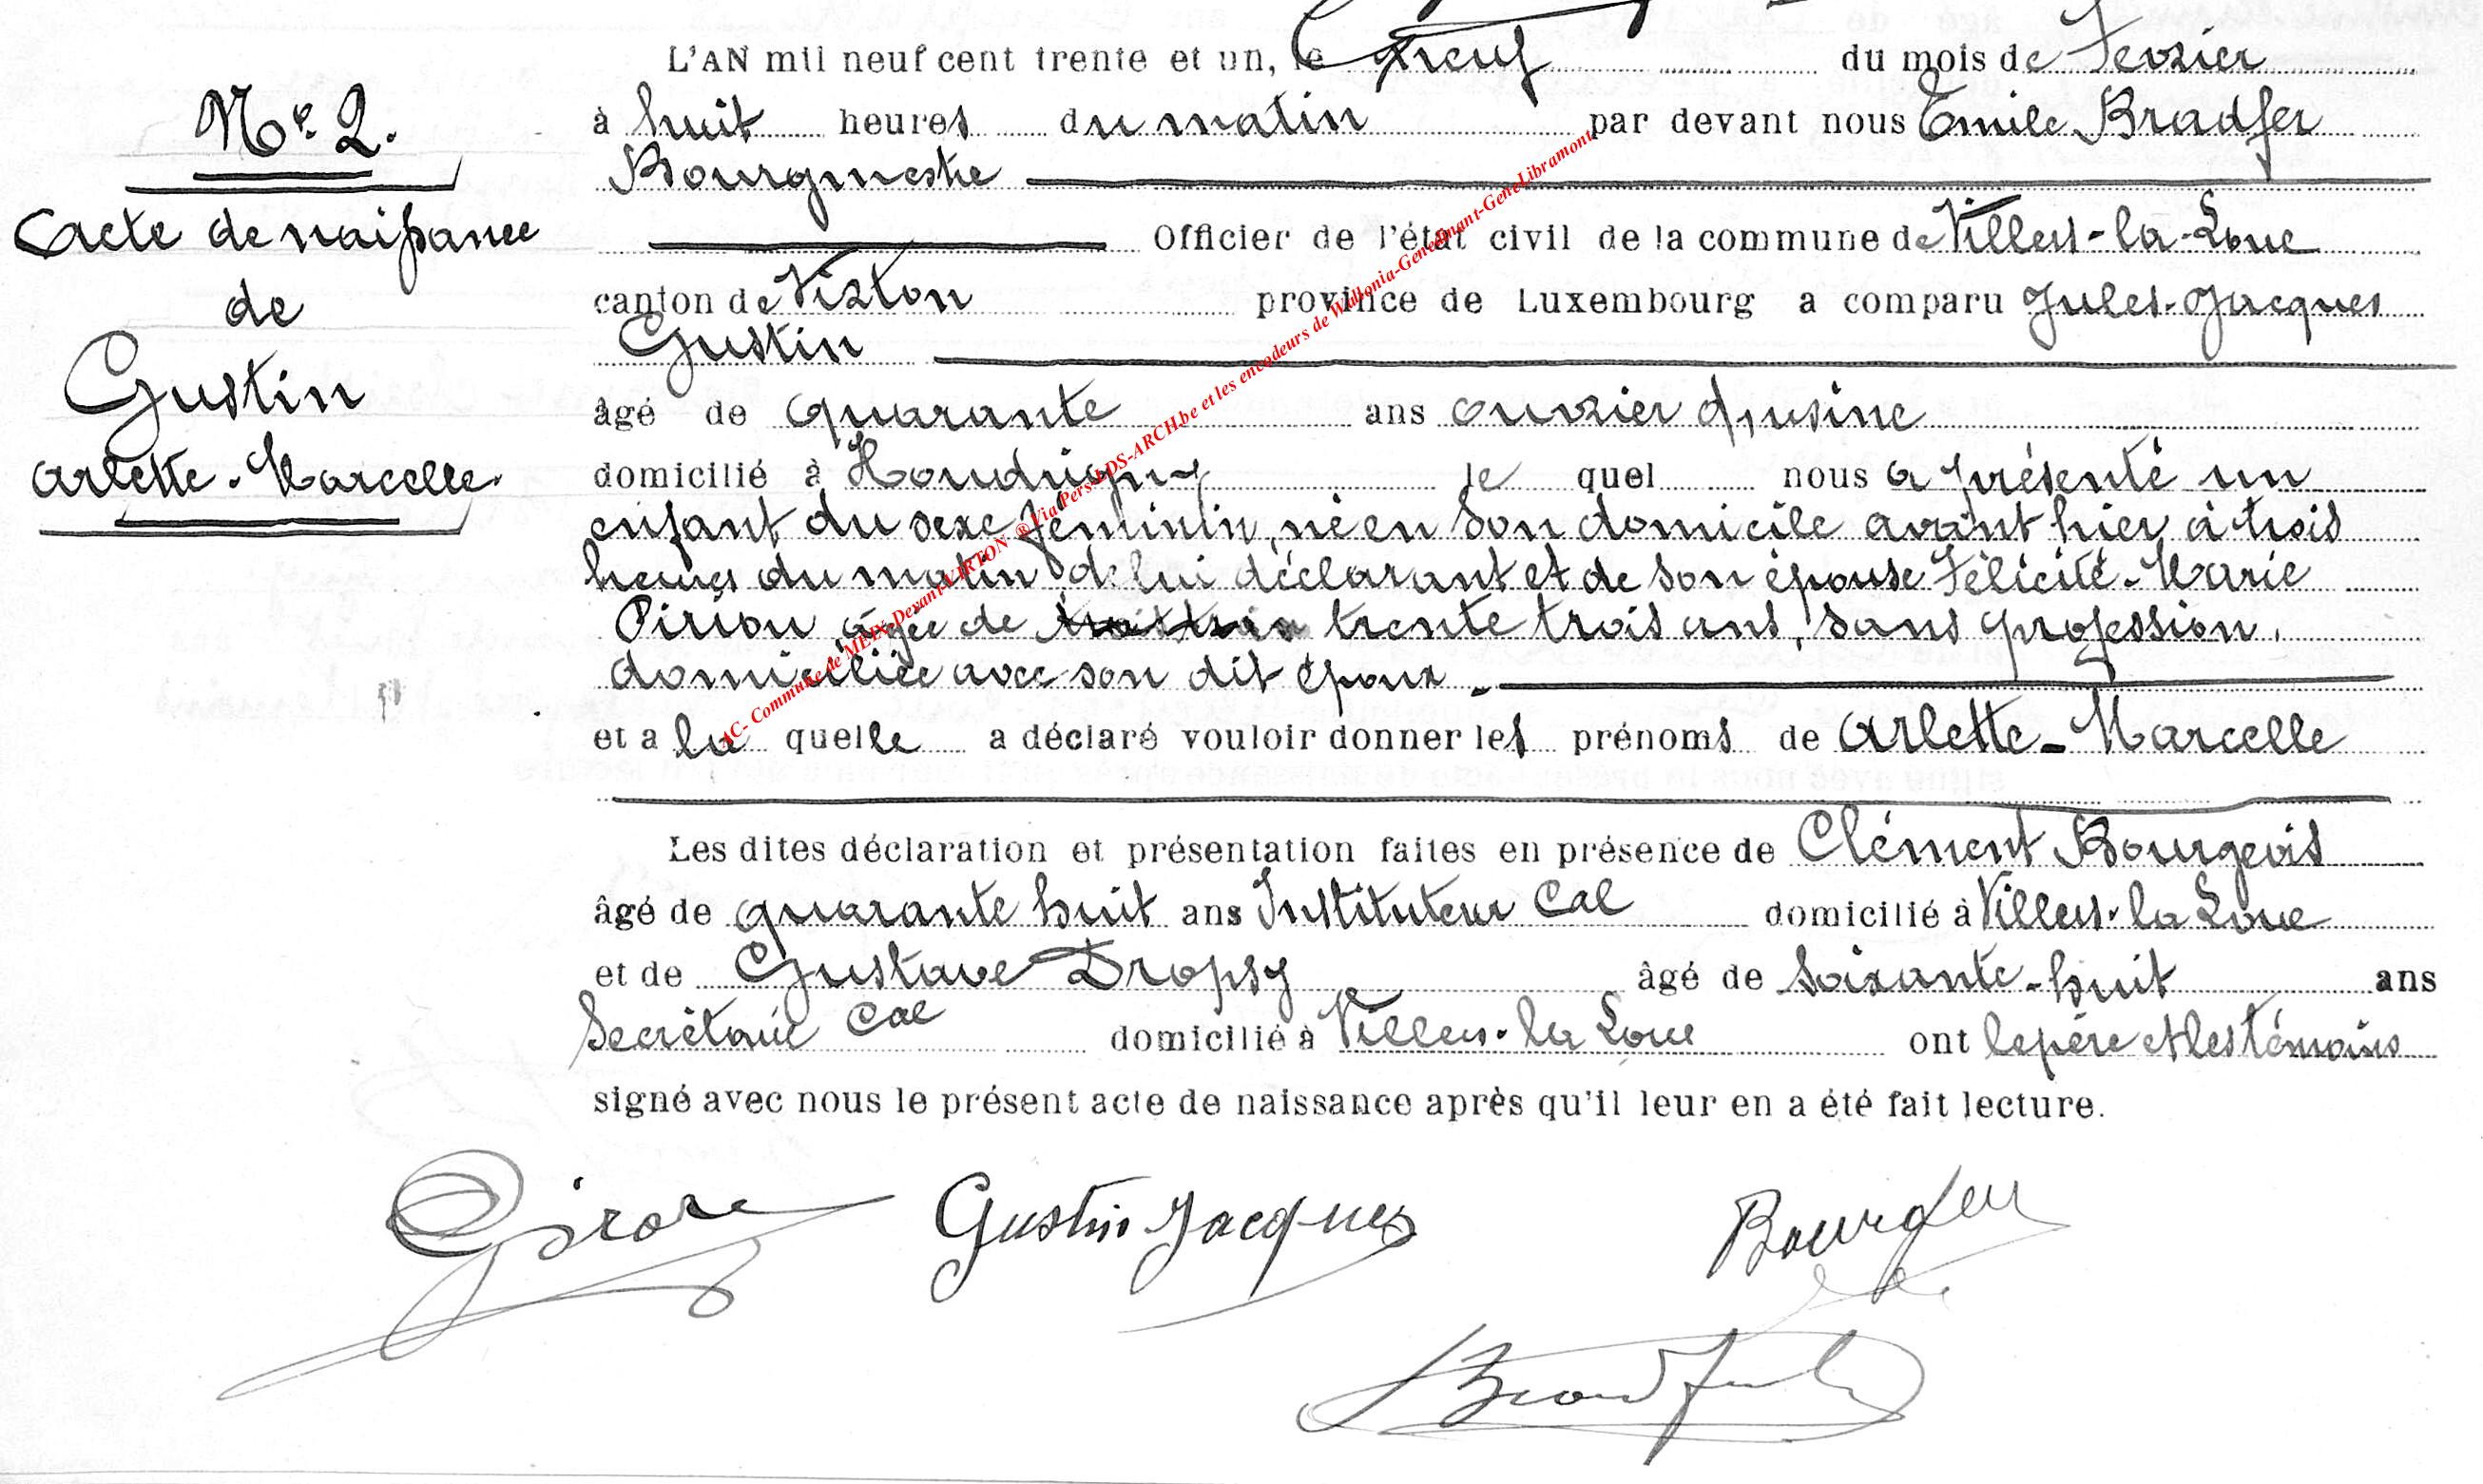 L'AN mil neuf cent trente et un, le neuf du mois de Fevrier
à huit heures du matin par devant nous Emile Bradfer
Bourgmestre
Officier de l'état civil de la commune de Villers-la-Loue
canton de Virton province de Luxembourg a comparu Jules-Jacques
Gustin
âgé de quarante ans ouvrier d'usine
domicilié à Houdrigny le quel nous a présenté un
enfant du sexe féminin, né en son domicile avant hier à trois
heures du matin de lui déclarant et de son épouse Félicité-Marie
Pirion, âgée de trente trois ans, sans profession,
domiciliée avec son dit époux.
et a la quelle a déclaré vouloir donner les prénoms de Arlette-Marcelle
Les dites déclaration et présentation faites en présence de Clément Bourgeois
âgé de quarante huit ans Instituteur Cal domicilié à Villers-la Loue
et de Gustave Dropsy âgé de soixante-huit ans
Secrétaire Cal domicilié à Villers-la Loue ont le père et les témoins
signé avec nous le présent acte de naissance après qu'il leur en a été fait lecture.
N° 2.
Acte de naissance
de
Gustin
Arlette-Marcelle.
AC- Commune de MEIX-Devant-VIRTON ® Via Pers-LDS-ARCH.be et les encodeurs de Wallonia-Genedinant-GeneLibramont
Gustin Jacques